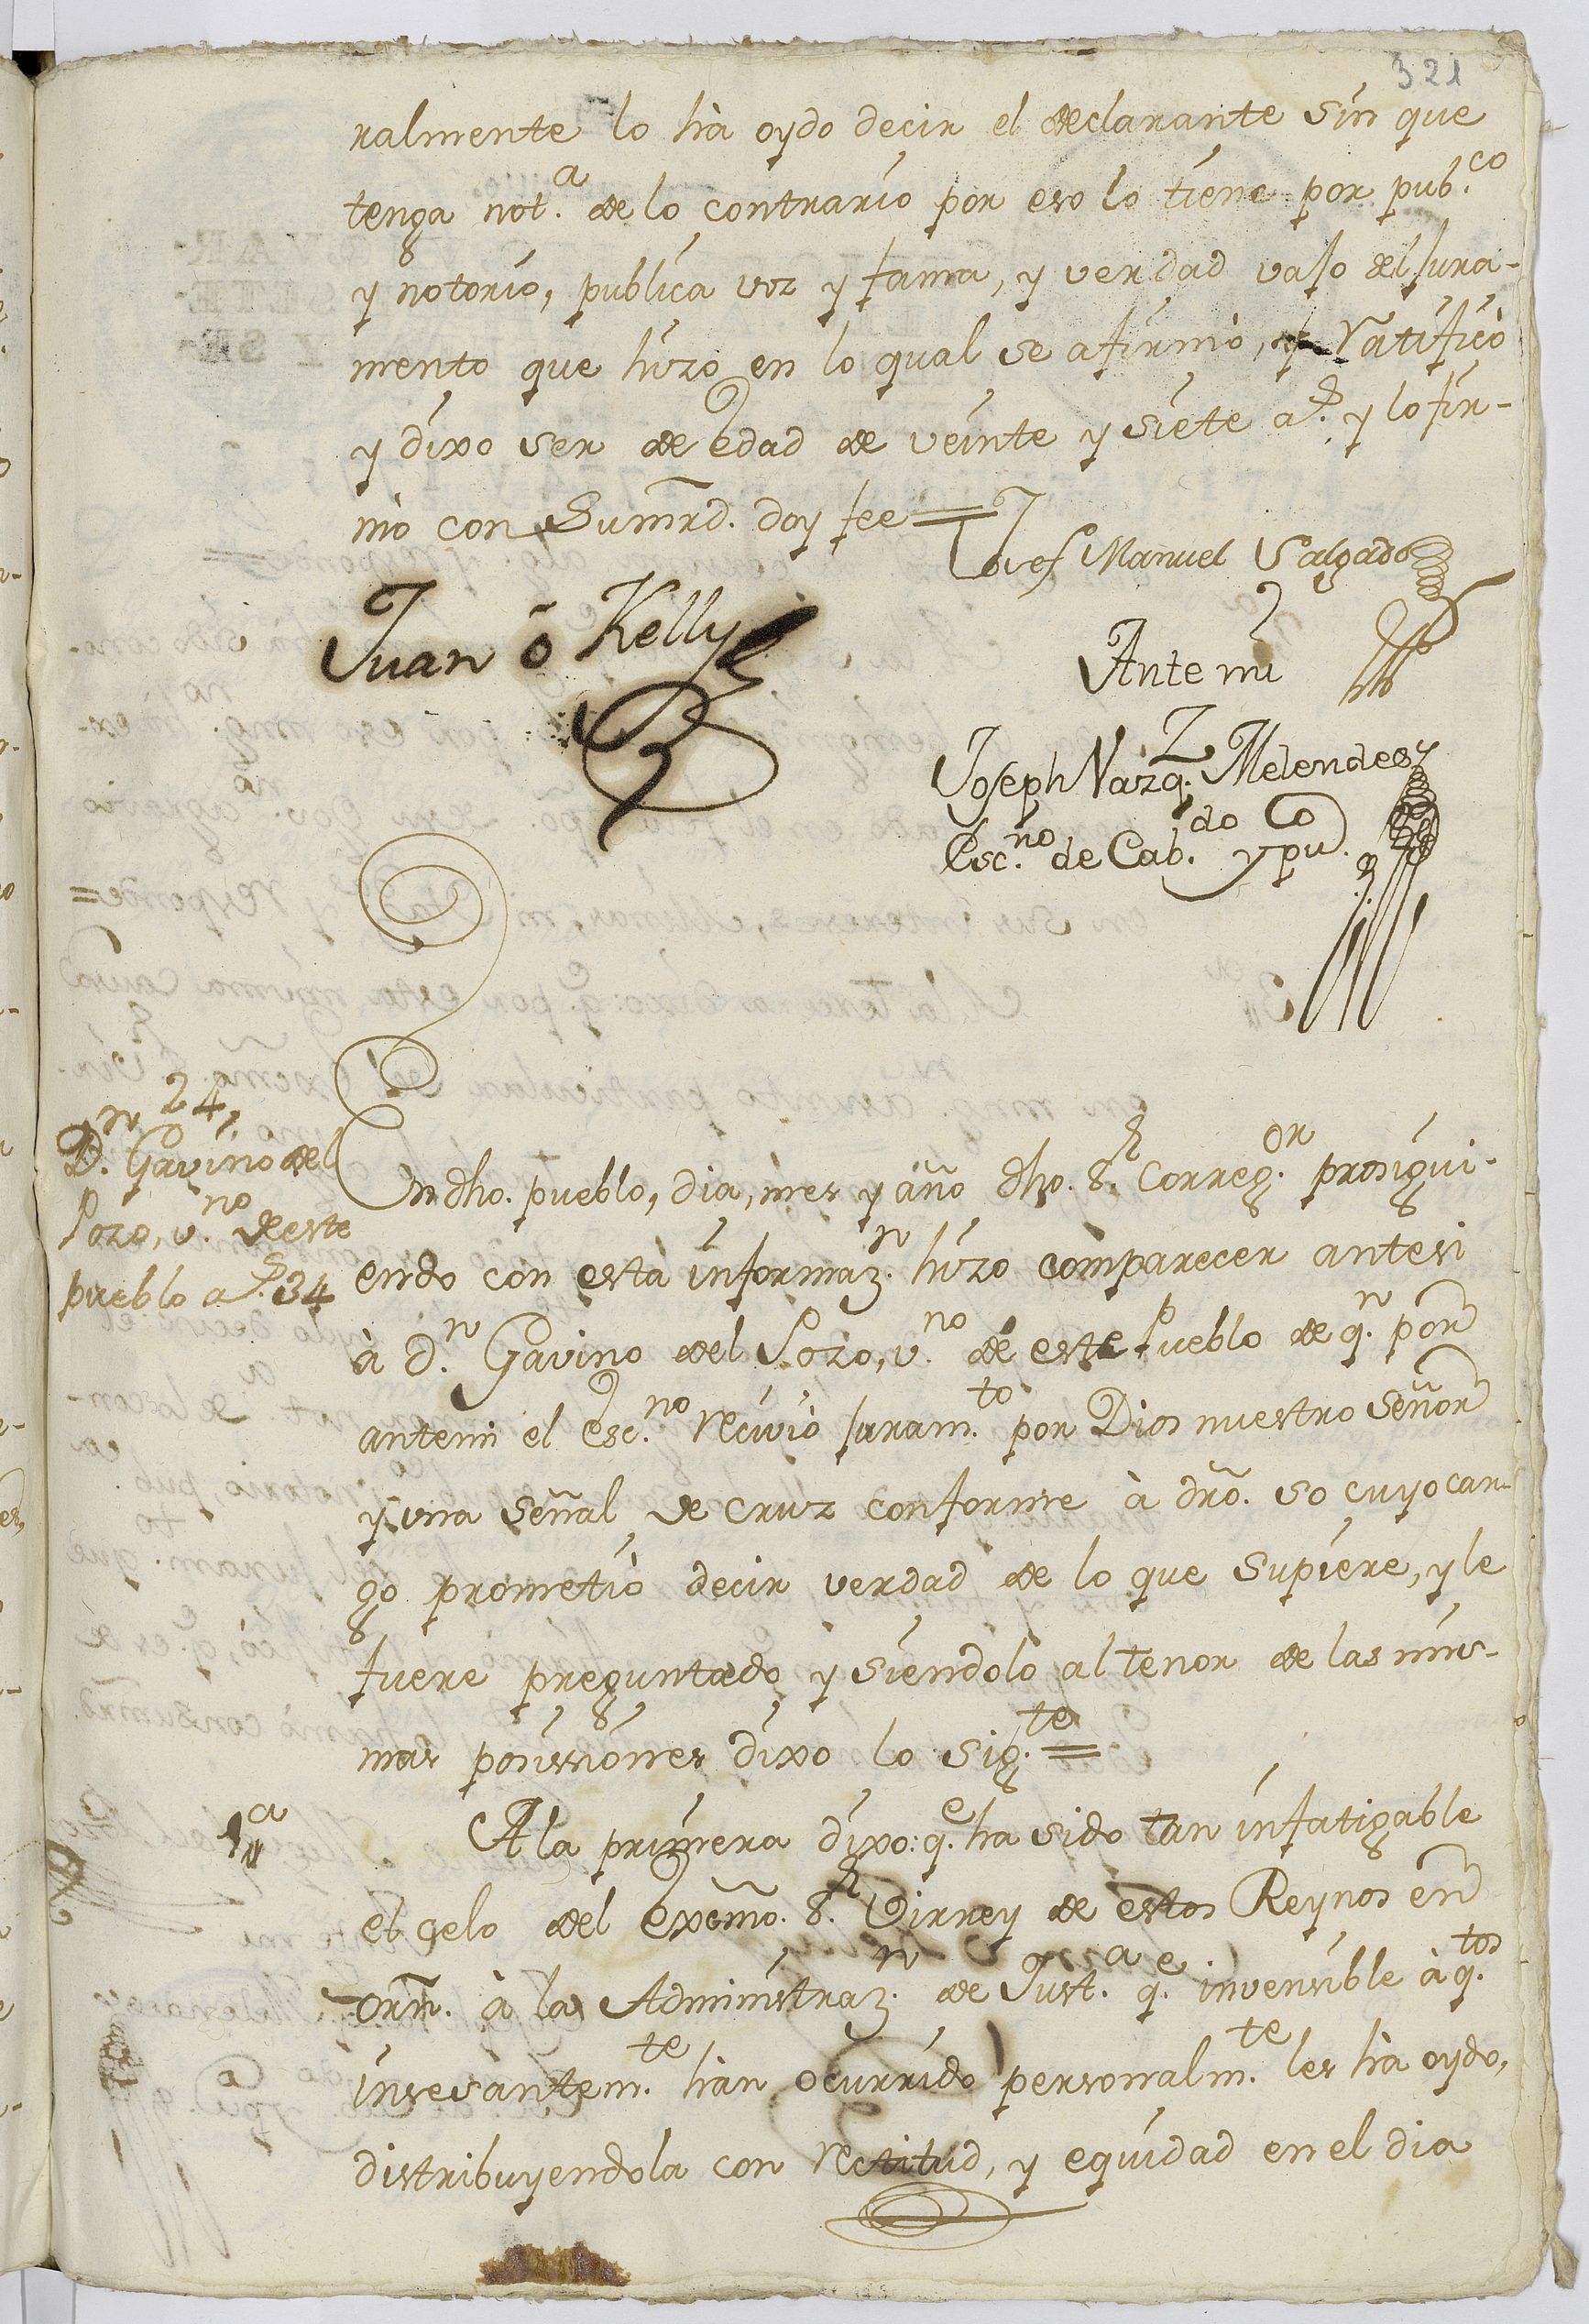 321
ralmente lo hà oydo decir el declarante sin que
tenga not.ª de lo contrario por eso lo tiene por pub.co
y notorio, publica voz y fama, y verdad vajo del jura-
mento que hizo en lo qual se afirmò, y Ratificò
y dixo ser de edad de veinte y siete a.s y lo fir-
mò con Sumrd. doy fee =
Josef Manuel Salgado
Juan ō Kelly
Ante mi
Joseph Vazq.z Melendes
Esc.no de Cab.do y pu.co
24,
D.n Gavino del
Pozo, v.no de este
pueblo a.s 34
En dho. pueblo, dia, mes y año dho. S.r Correg.or prosigui-
endo con esta informaz.n hizo comparecer antesi
à D.n Gavino del Pozo, v.no de este Pueblo de q.n por
antemi el Esc.no recivio juram.to por Dios nuestro Señor
y una señal de cruz conforme à dr̃o. so cuyo car-
go prometiò decir verdad de lo que supiere, y le
fuere preguntado y siendolo al tenor de las mis-
mas posissiones dixo lo sig.te =
1.ª
A la primera dixo: q.e ha sido tan infatigable
el gelo del Exc̃mo. S.r Virrey de estos Reynos en
orñ. à la Administraz.n de Just.a q.e invensible à q.tos
insesantem.te hàn ocurrido personalm.te les hà oydo,
distribuyendola con rectitud, y equidad en el dia